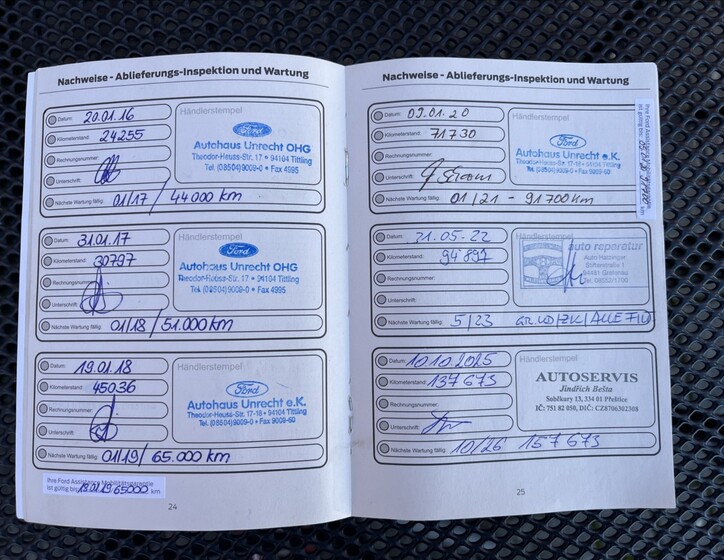 Nachweise - Ablieferungs-Inspektion und Wartung
Datum: 20.01.16
Kilometerstand: 24255
Rechnungsnummer:
Unterschrift:
Nächste Wartung fällig: 01/17 / 44000 km
Händlerstempel
Ford
Autohaus Unrecht OHG
Theodor-Heuss-Str. 17 • 94104 Tittling
Tel. (08504) 9009-0 • Fax 4995
Datum: 31.01.17
Kilometerstand: 30797
Rechnungsnummer:
Unterschrift:
Nächste Wartung fällig: 01/18 / 51.000 km
Händlerstempel
Ford
Autohaus Unrecht OHG
Theodor-Heuss-Str. 17 • 94104 Tittling
Tel. (08504) 9009-0 • Fax 4995
Datum: 19.01.18
Kilometerstand: 45036
Rechnungsnummer:
Unterschrift:
Nächste Wartung fällig: 01/19 / 65.000 km
Händlerstempel
Ford
Autohaus Unrecht e.K.
Theodor-Heuss-Str. 17-18 • 94104 Tittling
Tel. (08504) 9009-0 • Fax 9009-60
Ihre Ford Assistance Mobilitätsgarantie
ist gültig bis: 18.01.19 65000 km
24
Nachweise - Ablieferungs-Inspektion und Wartung
Datum: 09.01.20
Kilometerstand: 71730
Rechnungsnummer:
Unterschrift:
Nächste Wartung fällig: 01/21 - 91700 km
Händlerstempel
Ford
Autohaus Unrecht e.K.
Theodor-Heuss-Str. 17-18 • 94104 Tittling
Tel. (08504) 9009-0 • Fax 9009-60
Ihre Ford
ist gültig bis:
km
Datum: 31.05.22
Kilometerstand: 94'897
Rechnungsnummer:
Unterschrift:
Nächste Wartung fällig: 5/23
Händlerstempel
auto reparatur
94481 Grafenau
Datum: 10.10.2025
Kilometerstand: 137673
Rechnungsnummer:
Unterschrift:
Nächste Wartung fällig: 10/26 157673
Händlerstempel
AUTOSERVIS
Jindřich Bešta
Soběkury 13, 334 01 Přeštice
IČ: 751 82 050, DIČ: CZ8706302308
25